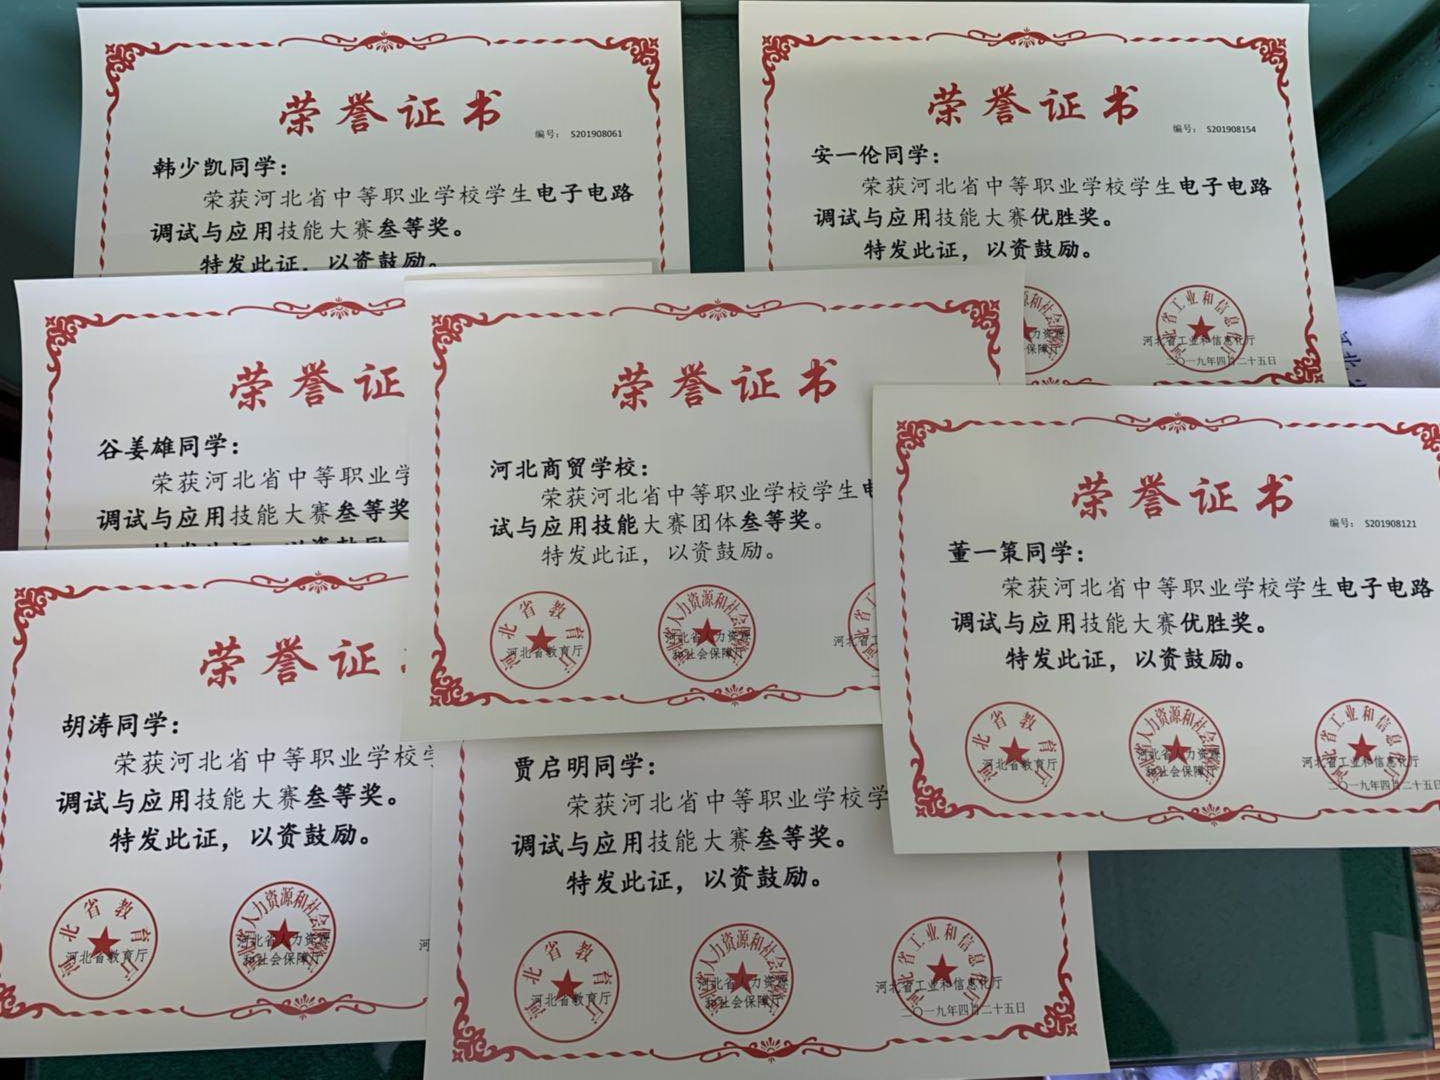 荣誉证书
编号： S201908061
韩少凯同学：
荣获河北省中等职业学校学生电子电路
调试与应用技能大赛叁等奖。
特发此证，以资鼓励。
荣誉证书
编号： S201908154
安一伦同学：
荣获河北省中等职业学校学生电子电路
调试与应用技能大赛优胜奖。
特发此证，以资鼓励。
河北省工业和信息化厅
二〇一九年四月二十五日
荣誉证
谷姜雄同学：
荣获河北省中等职业学
调试与应用技能大赛叁等奖
荣誉证书
河北商贸学校：
荣获河北省中等职业学校学生
试与应用技能大赛团体叁等奖。
特发此证，以资鼓励。
河北省教育厅
河北省人力资源
和社会保障厅
河北省工
荣誉证书
编号： S201908121
董一策同学：
荣获河北省中等职业学校学生电子电路
调试与应用技能大赛优胜奖。
特发此证，以资鼓励。
河北省教育厅
河北省人力资源
和社会保障厅
河北省工业和信息化厅
二〇一九年四月二十五日
荣誉证
胡涛同学：
荣获河北省中等职业学校学
调试与应用技能大赛叁等奖。
特发此证，以资鼓励。
河北省教育厅
河北省人力资源
和社会保障厅
河
贾启明同学：
荣获河北省中等职业学校学
调试与应用技能大赛叁等奖。
特发此证，以资鼓励。
河北省教育厅
河北省人力资源
和社会保障厅
河北省工业和信息化厅
二〇一九年四月二十五日